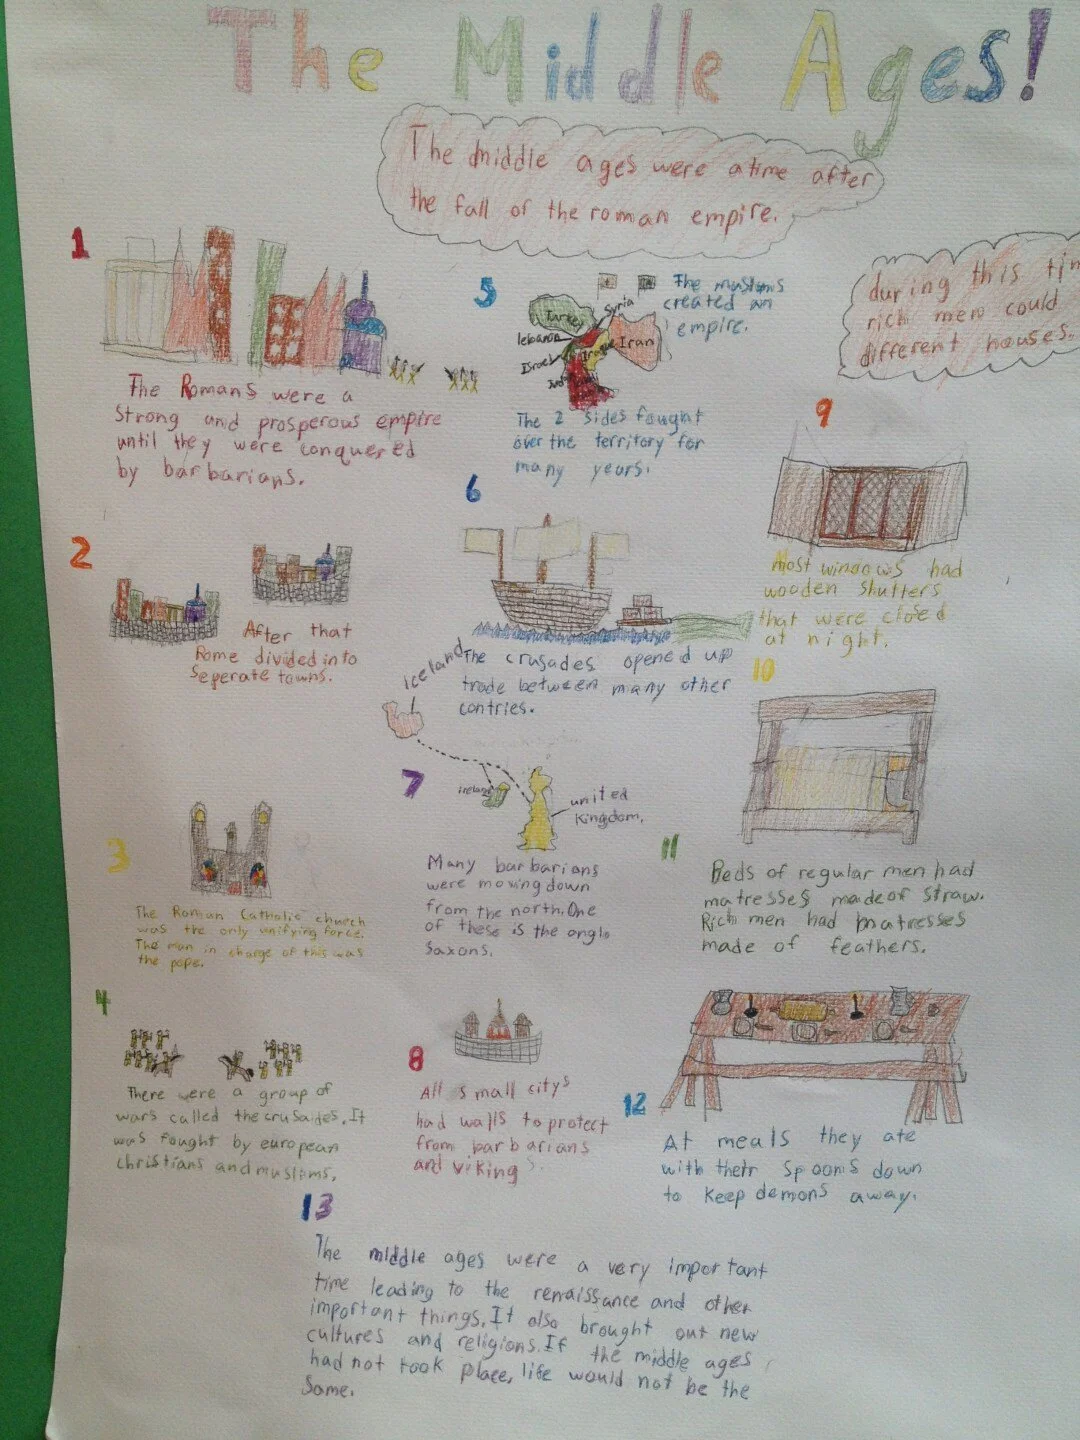 The Middle Ages!
The middle ages were a time after
the fall of the roman empire.
during this tim
rich men could
different houses.
1
The Romans were a
strong and prosperous empire
until they were conquered
by barbarians.
2
After that
Rome divided into
seperate towns.
3
The Roman Catholic church
was the only unifying force.
The man in charge of this was
the pope.
4
There were a group of
wars called the crusaides. It
was fought by european
christians and muslims.
5
The muslims
created an
empire.
Turkey
Syria
lebanon
Iraq
Iran
Israel
The 2 sides fought
over the territory for
many years.
6
The crusades opened up
trade between many other
contries.
7
Iceland
ireland
united
Kingdom.
Many barbarians
were moving down
from the north. One
of these is the anglo
saxons.
8
All small citys
had walls to protect
from barbarians
and vikings.
9
Most windows had
wooden shutters
that were closed
at night.
10
11
Beds of regular men had
matresses made of straw.
Rich men had matresses
made of feathers.
12
At meals they ate
with their spoons down
to keep demons away.
13
The middle ages were a very important
time leading to the renaissance and other
important things. It also brought out new
cultures and religions. If the middle ages
had not took place, life would not be the
same.